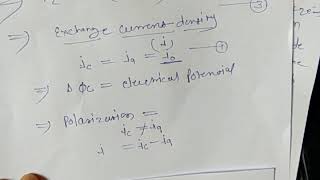 ③
⇒ Exchange current density
(i)
jc = ja = j0 —④
⇒ Δ ϕc = electrical potential
⇒ Polarization =
jc ≠ ja
j = jc - ja